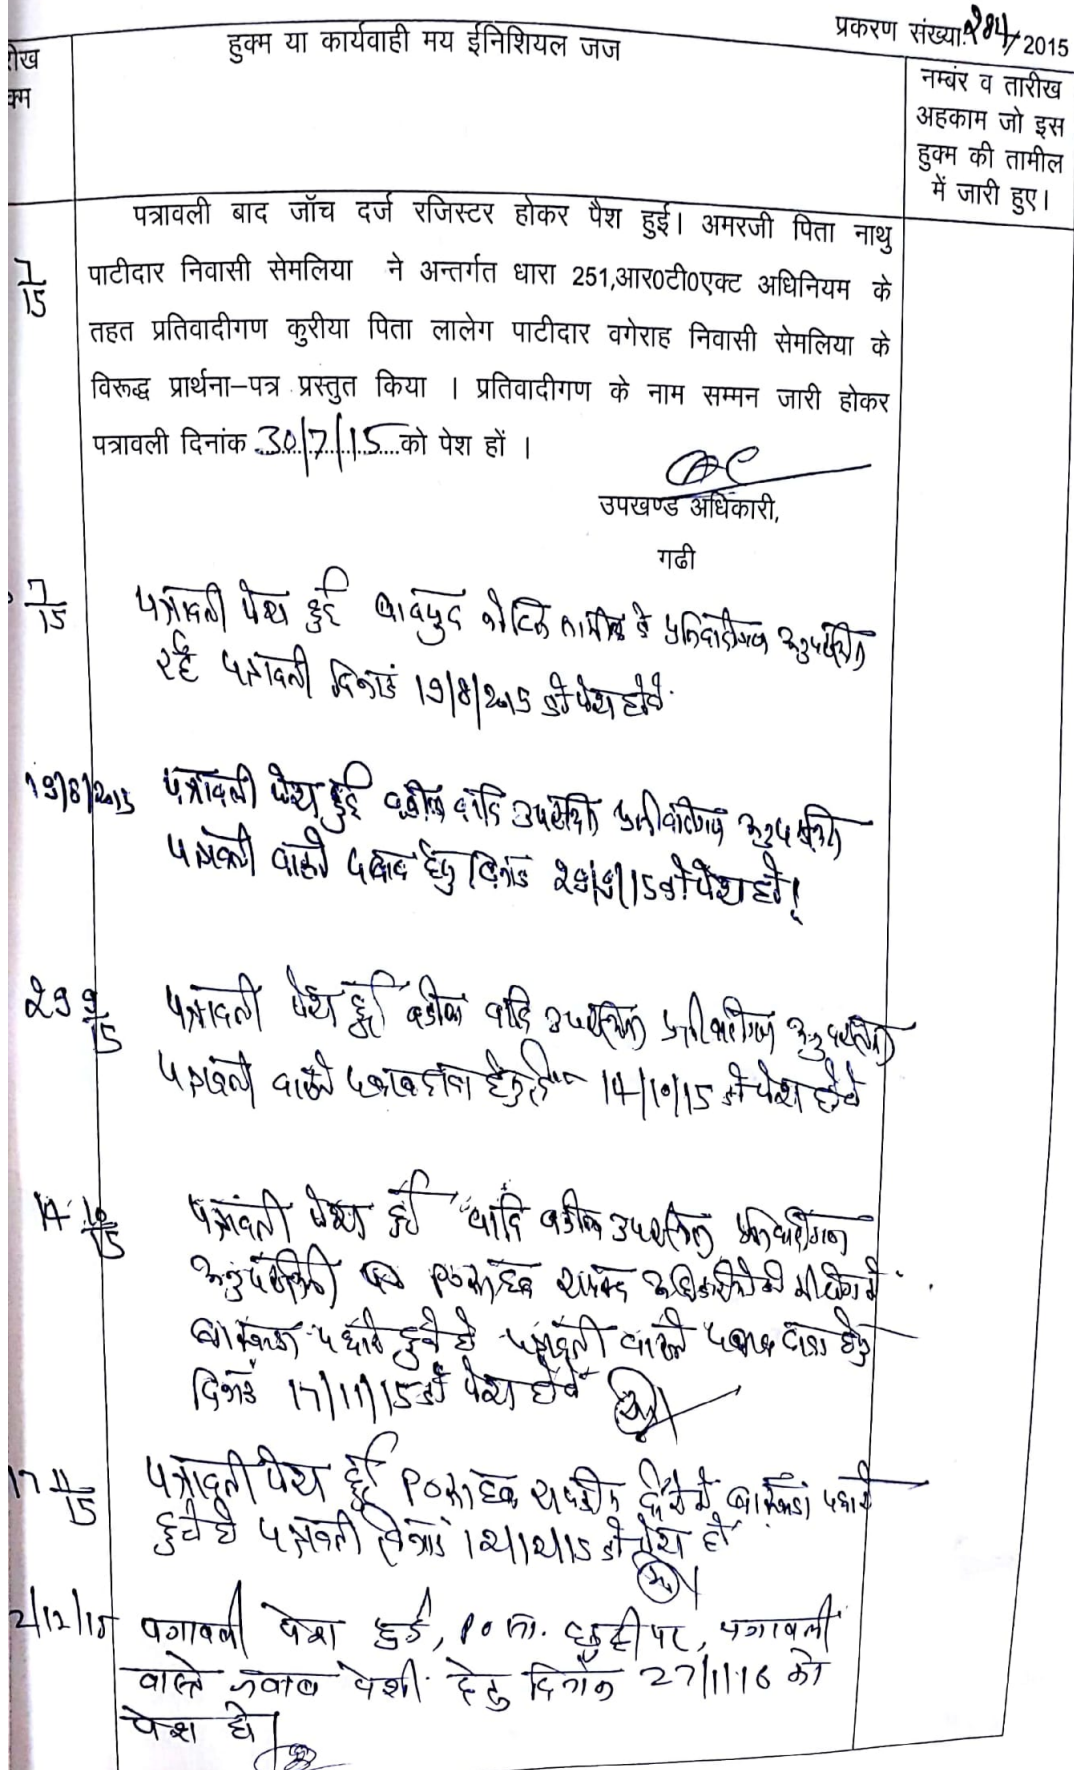 प्रकरण संख्या:284/2015
हुक्म या कार्यवाही मय ईनिशियल जज
नम्बंर व तारीख
अहकाम जो इस
हुक्म की तामील
में जारी हुए।
पत्रावली बाद जॉच दर्ज रजिस्टर होकर पैश हुई। अमरजी पिता नाथु
पाटीदार निवासी सेमलिया ने अन्तर्गत धारा 251,आर0टी0एक्ट अधिनियम के
तहत प्रतिवादीगण कुरीया पिता लालेग पाटीदार वगेराह निवासी सेमलिया के
विरूद्ध प्रार्थना–पत्र प्रस्तुत किया । प्रतिवादीगण के नाम सम्मन जारी होकर
पत्रावली दिनांक 30/7/15 को पेश हों ।
उपखण्ड अधिकारी,
गढी
7/15
7/15 पत्रावली पेश हुई बावजुद नोटिस तामील के प्रतिवादीगण अनुपस्थित
रहे पत्रावली दिनांक 19/8/2015 को पेश होवे
19/8/2015 पत्रावली पेश हुई वकील वादि उपस्थित प्रतीवादिगण अनुपस्थित
पत्रावली वास्ते जवाब हेतु दिनांक 29/9/15 को पेश हो।
29 9/15 पत्रावली पेश हुई वकील वादि उपस्थित प्रतीवादीगण अनुपस्थित
पत्रावली वास्ते जवाब दावा हेतु दि० 14/10/15 को पेश होवे
14 10/15 पत्रावली पेश हुई वादि वकील उपस्थित प्रतिवादीगण
अनुपस्थित अधिकारियो की मीटिंग मे
बांसवाडा पधारे हुवे है पत्रावली वास्ते जवाब दावा हेतु
दिनांक 17/11/15 को पेश होवे
17 11/15 पत्रावली पेश हुई PO साहब बांसवाडा पधारे
हुवे है पत्रावली दिनांक 12/12/15 को पेश हो
2/12/15 पत्रावली पेश हुई, P० सा. छुट्टी पर, पत्रावली
वास्ते जवाब पेशी हेतु दिनांक 27/1/16 को
पेश हो।